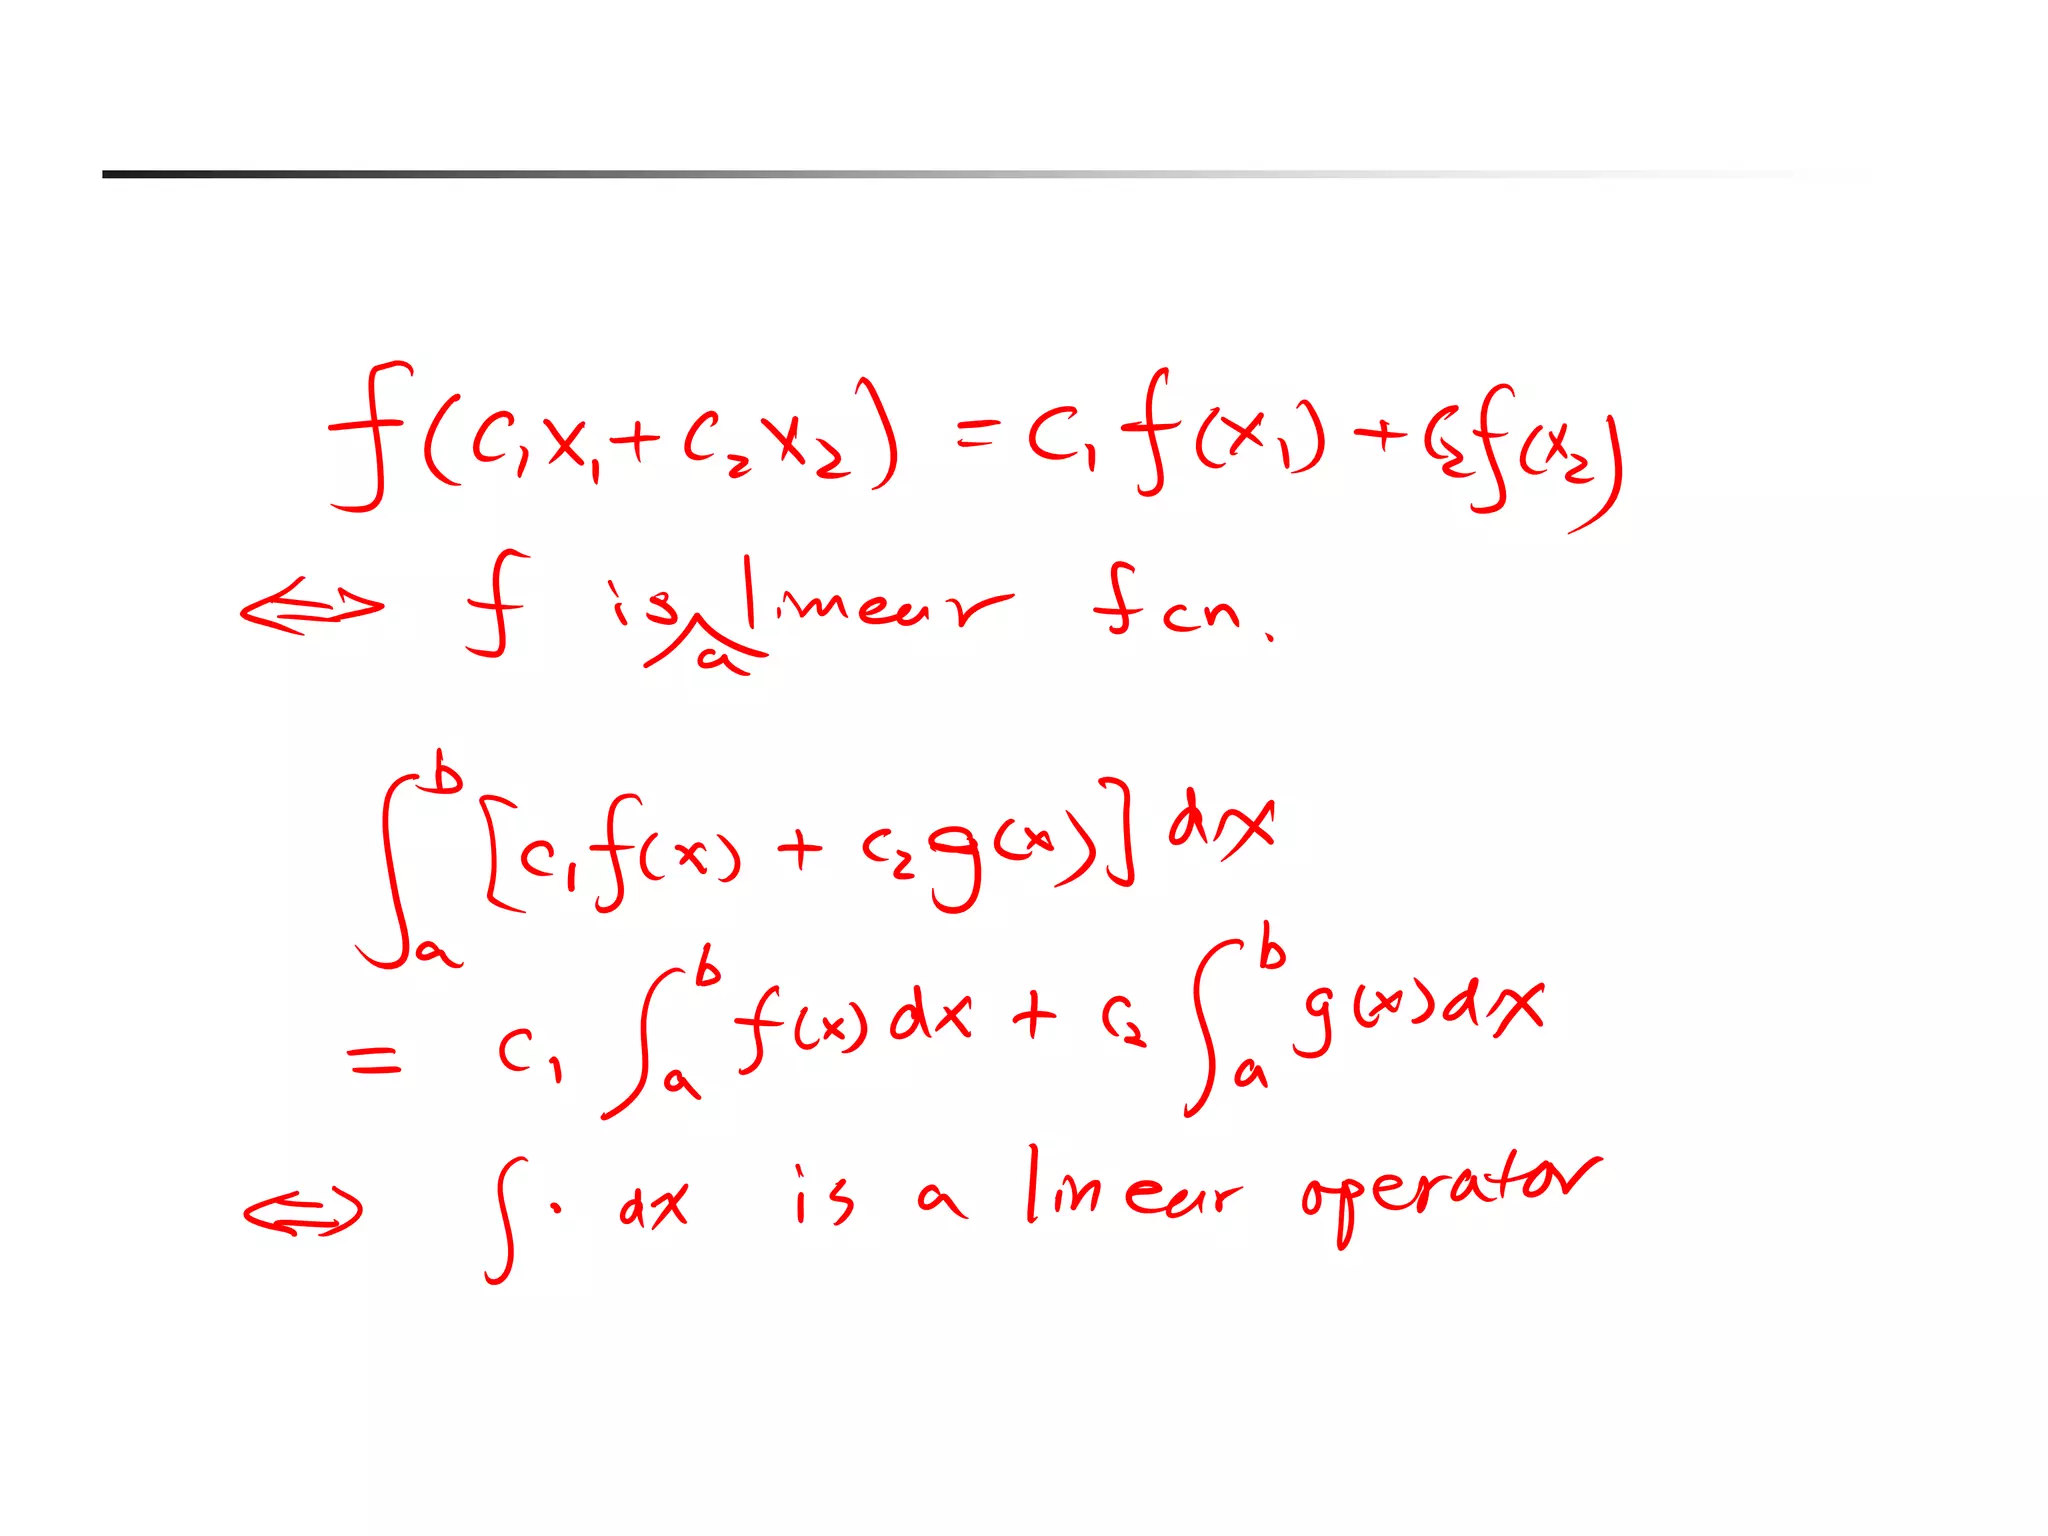 f(c₁x₁+c₂x₂) = c₁f(x₁) + c₂f(x₂)
⇔ f is a linear fcn.
∫ₐᵇ [c₁f(x) + c₂g(x)] dx
= c₁ ∫ₐᵇ f(x) dx + c₂ ∫ₐᵇ g(x) dx
⇔ ∫ · dx is a linear operator